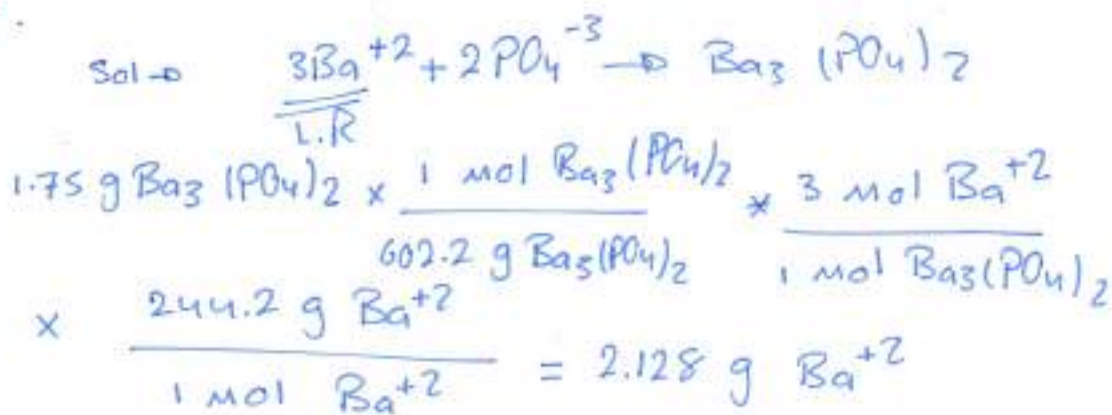 Sol → 3Ba⁺² + 2PO₄⁻³ → Ba₃(PO₄)₂
L.R
1.75 g Ba₃(PO₄)₂ × 1 mol Ba₃(PO₄)₂ / 602.2 g Ba₃(PO₄)₂ × 3 mol Ba⁺² / 1 mol Ba₃(PO₄)₂
× 244.2 g Ba⁺² / 1 mol Ba⁺² = 2.128 g Ba⁺²